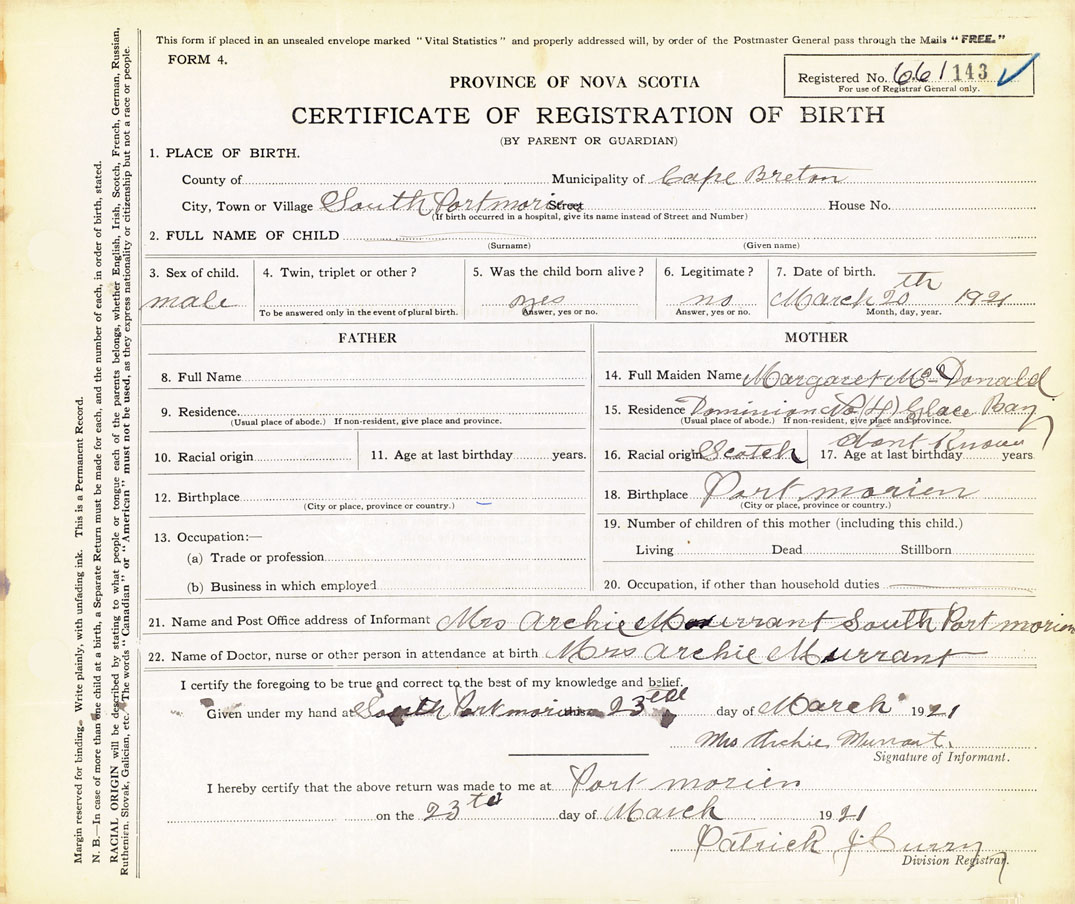 This form if placed in an unsealed envelope marked "Vital Statistics" and properly addressed will, by order of the Postmaster General pass through the Mails "FREE."
FORM 4.
Registered No. 661143
For use of Registrar General only.
PROVINCE OF NOVA SCOTIA
CERTIFICATE OF REGISTRATION OF BIRTH
(BY PARENT OR GUARDIAN)
1. PLACE OF BIRTH.
County of Municipality of Cape Breton
City, Town or Village South Portmorien Street House No.
(If birth occurred in a hospital, give its name instead of Street and Number)
2. FULL NAME OF CHILD
(Surname) (Given name)
3. Sex of child. 4. Twin, triplet or other? 5. Was the child born alive? 6. Legitimate? 7. Date of birth.
male yes no March 20th 1921
To be answered only in the event of plural birth. Answer, yes or no. Answer, yes or no. Month, day, year.
FATHER
8. Full Name
9. Residence.
(Usual place of abode.) If non-resident, give place and province.
10. Racial origin 11. Age at last birthday years.
12. Birthplace
(City or place, province or country.)
13. Occupation:—
(a) Trade or profession
(b) Business in which employed
MOTHER
14. Full Maiden Name Margaret McDonald
15. Residence Dominion No (4) Glace Bay
(Usual place of abode.) If non-resident, give place and province.
16. Racial origin Scotch 17. Age at last birthday dont Know years
18. Birthplace Port morien
(City or place, province or country.)
19. Number of children of this mother (including this child.)
Living Dead Stillborn
20. Occupation, if other than household duties
21. Name and Post Office address of Informant Mrs Archie Murrant South Port morien
22. Name of Doctor, nurse or other person in attendance at birth Mrs archie Murrant
I certify the foregoing to be true and correct to the best of my knowledge and belief.
Given under my hand at South Portmorien this 23rd day of March 1921
Mrs Archie Murrant.
Signature of Informant.
I hereby certify that the above return was made to me at Port morien
on the 23 day of March 1921
Patrick J Curry
Division Registrar.
Margin reserved for binding. Write plainly, with unfading ink. This is a Permanent Record.
N. B.—In case of more than one child at a birth, a Separate Return must be made for each, and the number of each, in order of birth, stated.
RACIAL ORIGIN will be described by stating to what people or tongue each of the parents belongs, whether English, Irish, Scotch, French, German, Russian,
Ruthenian, Slovak, Galician, etc. The words "Canadian" or "American" must not be used, as they express nationality or citizenship but not a race or people.